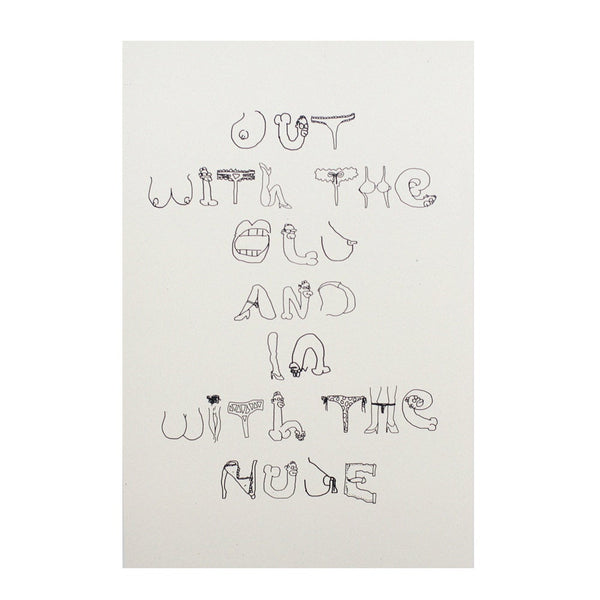 OUT
WITH THE
OLD
AND
IN
WITH THE
NUDE